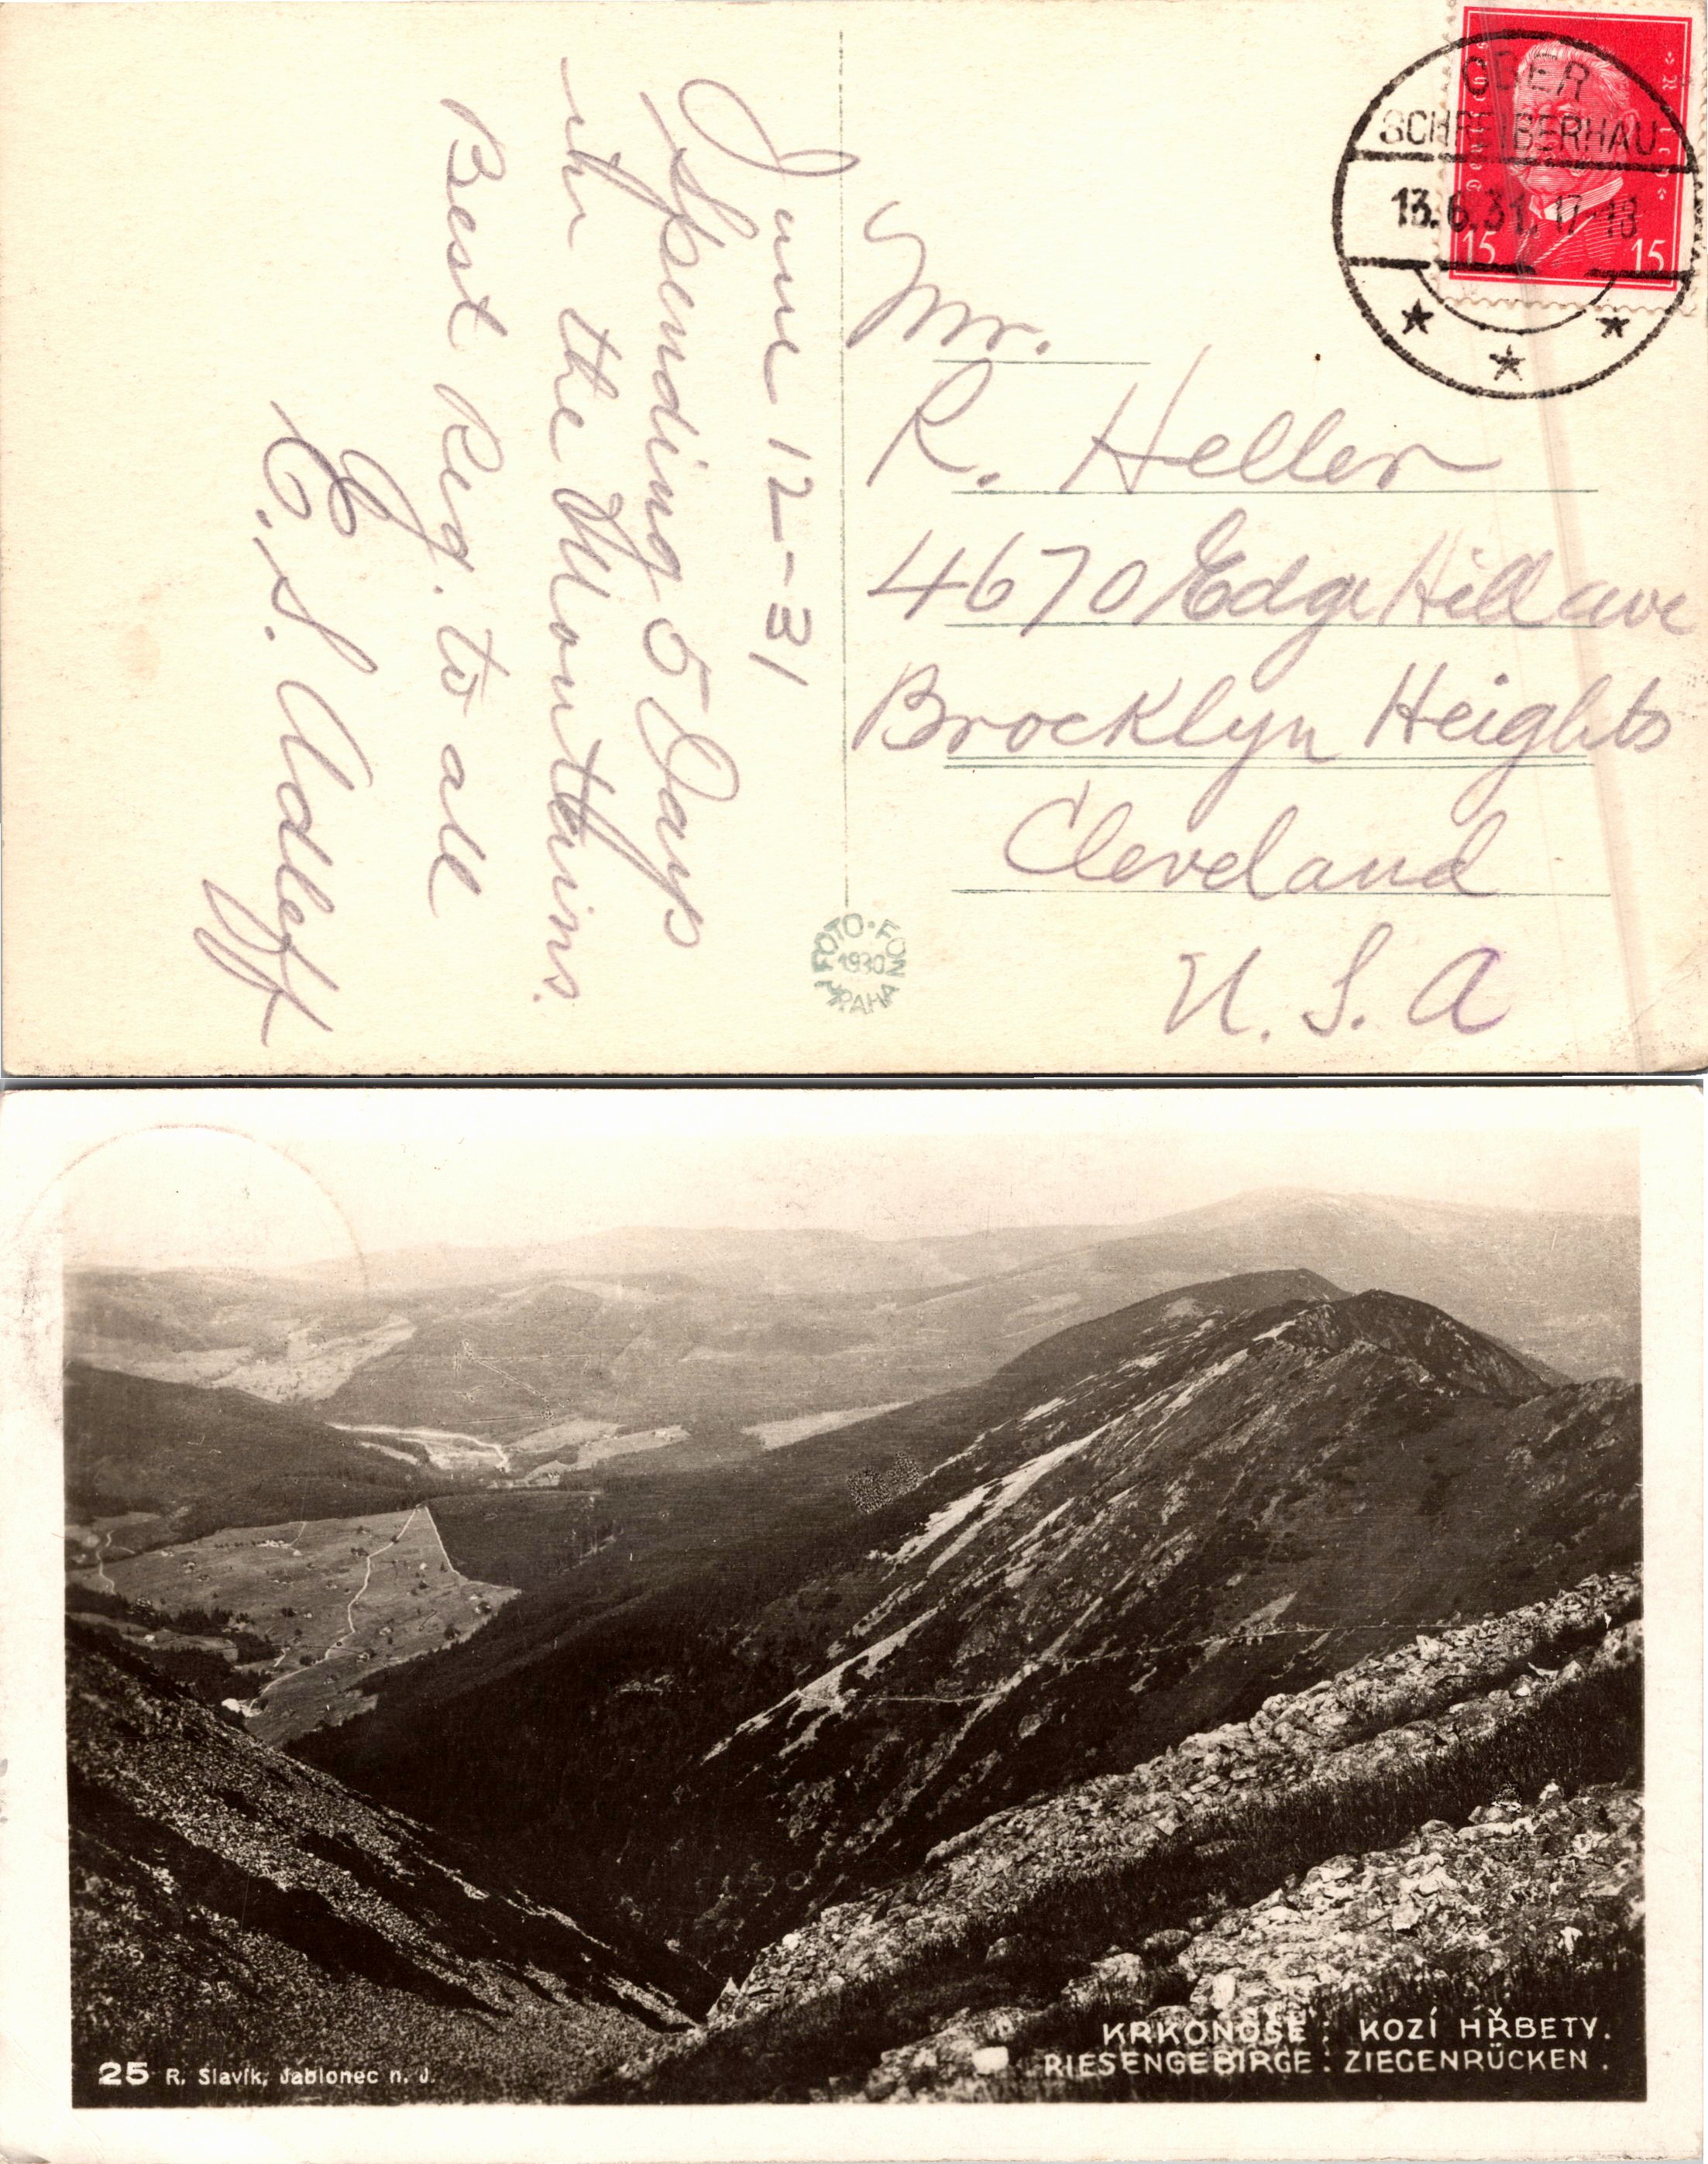 June 12-31
Spending 5 Days
in the Mountains.
Best Reg. to all
E. S. Adleff
Mr.
R. Heller
4670 Edge Hill ave
Brocklyn Heights
Cleveland
U. S. A
OBER
SCHREIBERHAU
13.6.31. 17-18
15 15
FOTO-FON
1930
PRAHA
KRKONOŠE: KOZÍ HŘBETY.
RIESENGEBIRGE: ZIEGENRÜCKEN.
25 R. Slavík, Jablonec n. J.